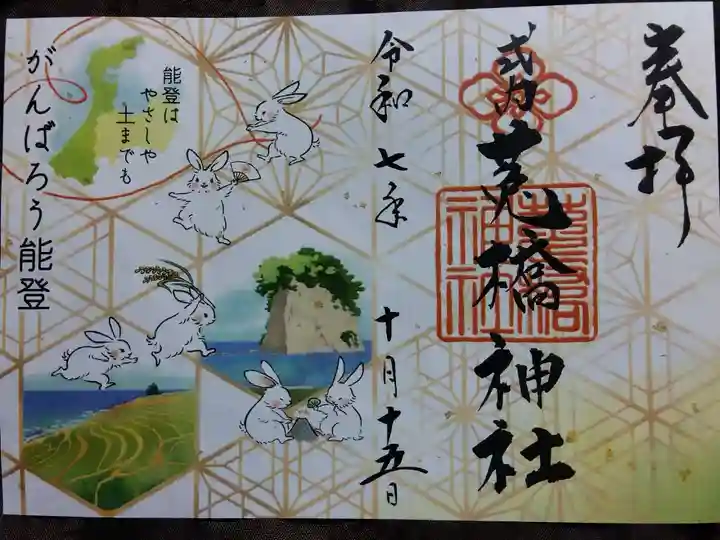 奉拝
式内
莵橋神社
莵橋神社
令和七年
十月十五日
能登は
やさしや
土までも
がんばろう能登